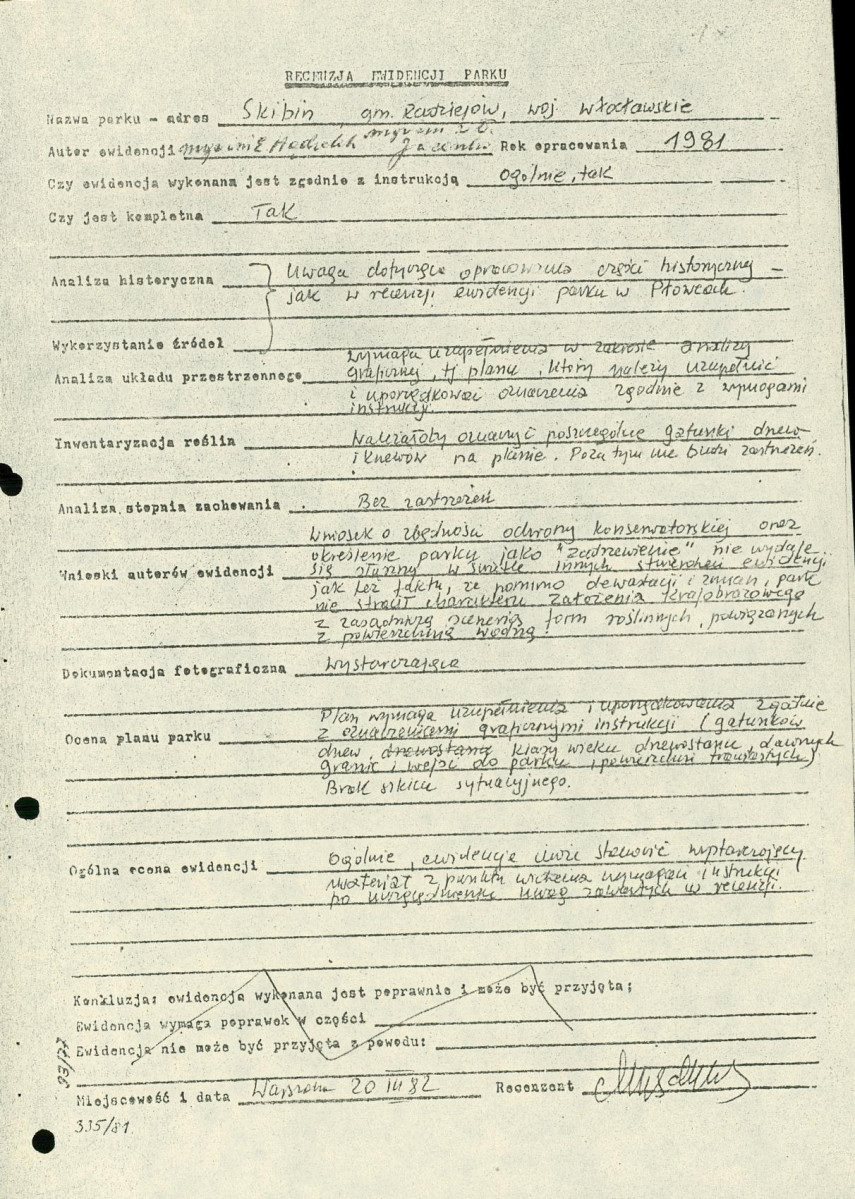 RECENZJA EWIDENCJI PARKU
Nazwa parku - adres Skibin, gm. Radziejów, woj włocławskie
Autor ewidencji mgr inż E. mgr inż Rok opracowania 1981
Czy ewidencja wykonana jest zgodnie z instrukcją Ogólnie, tak
Czy jest kompletna Tak
Analiza historyczna Uwaga dotycząca opracowania części historycznej -
jak w recenzji ewidencji parku w Płowcach.
Wykorzystanie źródeł
Analiza układu przestrzennego wymaga uzupełnienia w zakresie analizy
graficznej, tj planu, który należy uzupełnić
i uporządkować oznaczenia zgodnie z wymogami
instrukcji.
Inwentaryzacja roślin Należałoby oznaczyć poszczególne gatunki drzew
i krzewów na planie. Poza tym nie budzi zastrzeżeń.
Analiza stopnia zachowania Bez zastrzeżeń
Wnioski autorów ewidencji Wniosek o zbędności ochrony konserwatorskiej oraz
określenie parku jako "zadrzewienie" nie wydaje
się słuszny w świetle innych stwierdzeń ewidencji
jak też faktu, że pomimo dewastacji i zmian, park
nie stracił charakteru założenia krajobrazowego
z zasadniczą scenerią form roślinnych, powiązanych
z powierzchnią wodną.
Dokumentacja fotograficzna Wystarczająca
Ocena planu parku Plan wymaga uzupełnienia i uporządkowania zgodnie
z oznaczeniami graficznymi instrukcji (gatunków
drzew drzewostanu, klasy wieku drzewostanu, dawnych
granic i wejść do parku, powierzchni trawiastych)
Brak szkicu sytuacyjnego.
Ogólna ocena ewidencji Ogólnie, ewidencja może stanowić wystarczający
materiał z punktu widzenia wymagań instrukcji
po uwzględnieniu uwag zawartych w recenzji.
Konkluzja: ewidencja wykonana jest poprawnie i może być przyjęta;
Ewidencja wymaga poprawek w części
Ewidencja nie może być przyjęta z powodu:
Miejscowość i data Warszawa 20 III 82 Recenzent
335/81